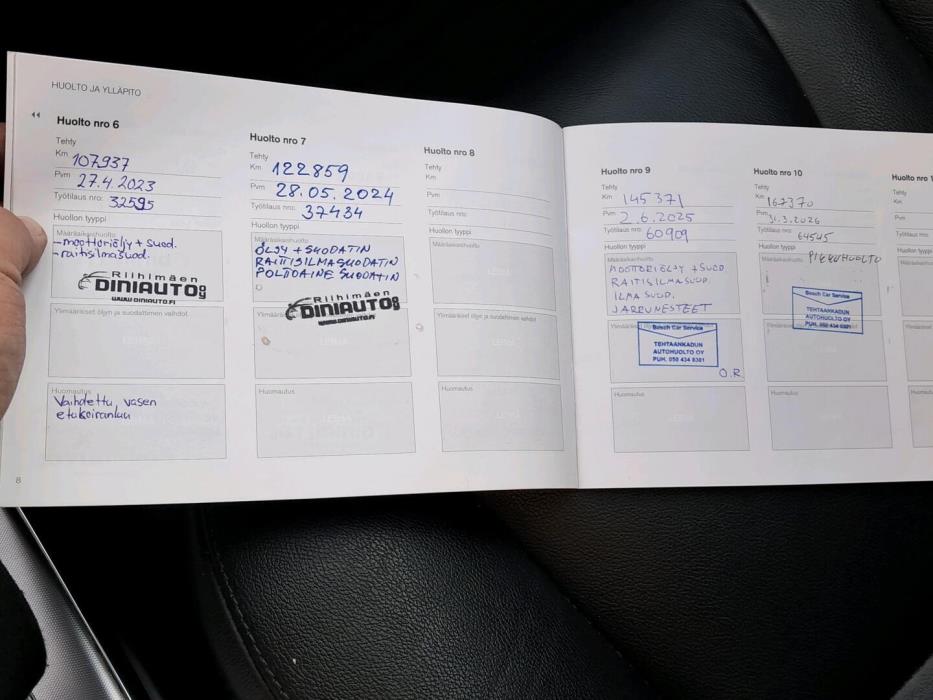 HUOLTO JA YLLÄPITO
Huolto nro 6
Tehty
Km 107937
Pvm 27.4.2023
Työtilaus nro: 32595
Huollon tyyppi
Määräaikaishuolto
-moottoriöljy + suod.
-raitisilmasuod.
Riihimäen
DINIAUTO
WWW.DINIAUTO.FI
Ylimääräiset öljyn ja suodattimen vaihdot
Huomautus
Vaihdettu vasen
etukoiranluu
8
Huolto nro 7
Tehty
Km 122859
Pvm 28.05.2024
Työtilaus nro: 37434
Huollon tyyppi
Määräaikaishuolto
ÖLJY + SUODATIN
RAITISILMASUODATIN
POLTTOAINE SUODATIN
Riihimäen
DINIAUTO
WWW.DINIAUTO.FI
Huomautus
Huolto nro 8
Tehty
Km
Pvm
Työtilaus nro:
Huollon tyyppi
Määräaikaishuolto
Ylimääräiset öljyn ja suodattimen vaihdot
Huomautus
Huolto nro 9
Tehty
Km 145371
Pvm 2.6.2025
Työtilaus nro: 60909
Huollon tyyppi
Määräaikaishuolto
MOOTTORIÖLJY + SUOD.
RAITISILMASUOD.
ILMA SUOD.
JARRUNESTEET
Bosch Car Service
TEHTAANKADUN
AUTOHUOLTO OY
PUH. 050 434 8381
O.R
Huomautus
Huolto nro 10
Tehty
Km 167370
Pvm 31.3.2026
Työtilaus nro: 64545
Huollon tyyppi
Määräaikaishuolto
PIKKUHUOLTO
Bosch Car Service
TEHTAANKADUN
AUTOHUOLTO OY
PUH. 050 434 8381
Huomautus
Huolto nro
Tehty
Km
Pvm